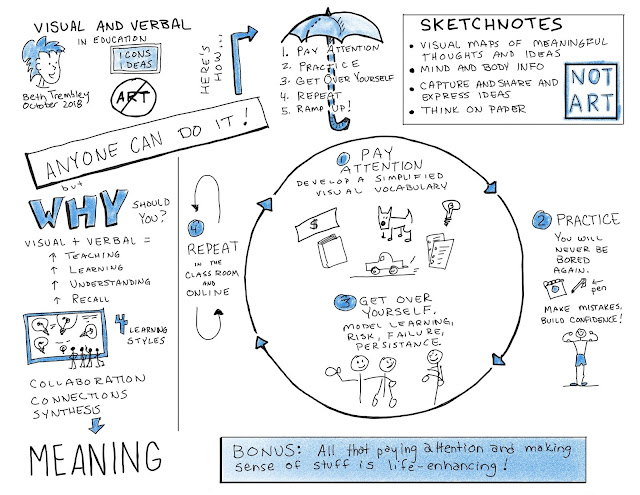 VISUAL AND VERBAL
IN EDUCATION
ICONS
IDEAS
Beth Trembley
October 2018
ART
HERE'S
HOW...
1. PAY ATTENTION
2. PRACTICE
3. GET OVER YOURSELF
4. REPEAT
5. RAMP UP!
SKETCHNOTES
• VISUAL MAPS OF MEANINGFUL
THOUGHTS AND IDEAS
• MIND AND BODY INFO
• CAPTURE AND SHARE AND
EXPRESS IDEAS
• THINK ON PAPER
NOT
ART
ANYONE CAN DO IT!
but
WHY
SHOULD
YOU?
VISUAL + VERBAL =
↑ TEACHING
↑ LEARNING
↑ UNDERSTANDING
↑ RECALL
4 LEARNING
STYLES
COLLABORATION
CONNECTIONS
SYNTHESIS
MEANING
1 PAY
ATTENTION
DEVELOP A SIMPLIFIED
VISUAL VOCABULARY
$
2 PRACTICE
YOU WILL
NEVER BE
BORED
AGAIN.
pen
MAKE MISTAKES,
BUILD CONFIDENCE!
3 GET OVER
YOURSELF.
MODEL LEARNING,
RISK, FAILURE,
PERSISTANCE.
4
REPEAT
IN THE
CLASSROOM AND
ONLINE
BONUS: All that paying attention and making
sense of stuff is life-enhancing!